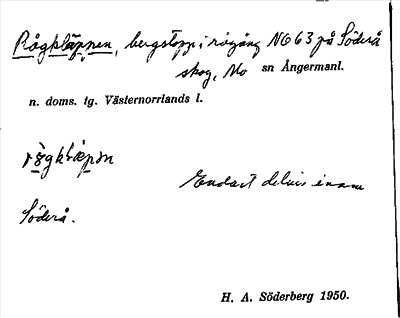 Rågkläppen, bergstopp i rågång NO 63 på Söderå
skog, Mo sn Ångermanl.
n. doms. tg. Västernorrlands l.
Endast delvis inom
Söderå.
H. A. Söderberg 1950.